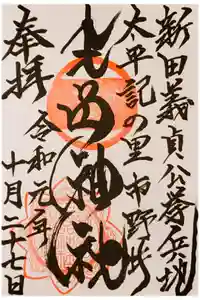 新田義貞公挙兵地
太平記の里 市野井
生品神社
奉拝
令和元年
十月二十七日